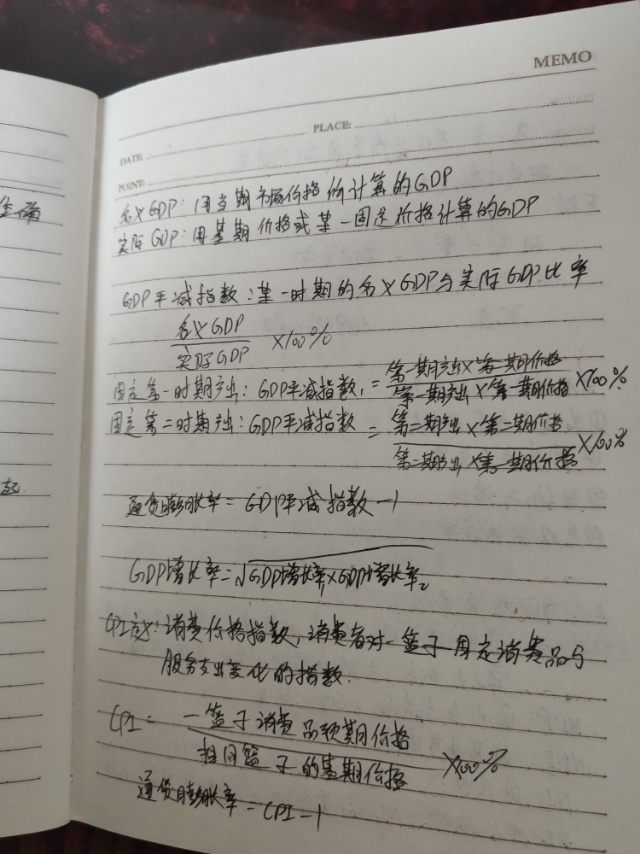 MEMO
PLACE:
DATE:
POINT:
名义GDP：用当期市场价格价计算的GDP
实际GDP：用基期价格或某一固定价格计算的GDP
GDP平减指数：某一时期的名义GDP与实际GDP比率
名义GDP
实际GDP ×100%
固定第一时期产出：GDP平减指数₁ = 第一期产出×第二期价格
第一期产出×第一期价格 ×100%
固定第二时期产出：GDP平减指数 = 第二期产出×第二期价格
第二期产出×第一期价格 ×100%
通货膨胀率 = GDP平减指数 - 1
GDP增长率 = √GDP增长率₁×GDP增长率₂
CPI定义：消费价格指数，消费者对一篮子固定消费品与
服务支出变化的指数.
CPI = 一篮子消费品现期价格
相同篮子的基期价格 ×100%
通货膨胀率 = CPI - 1
准确